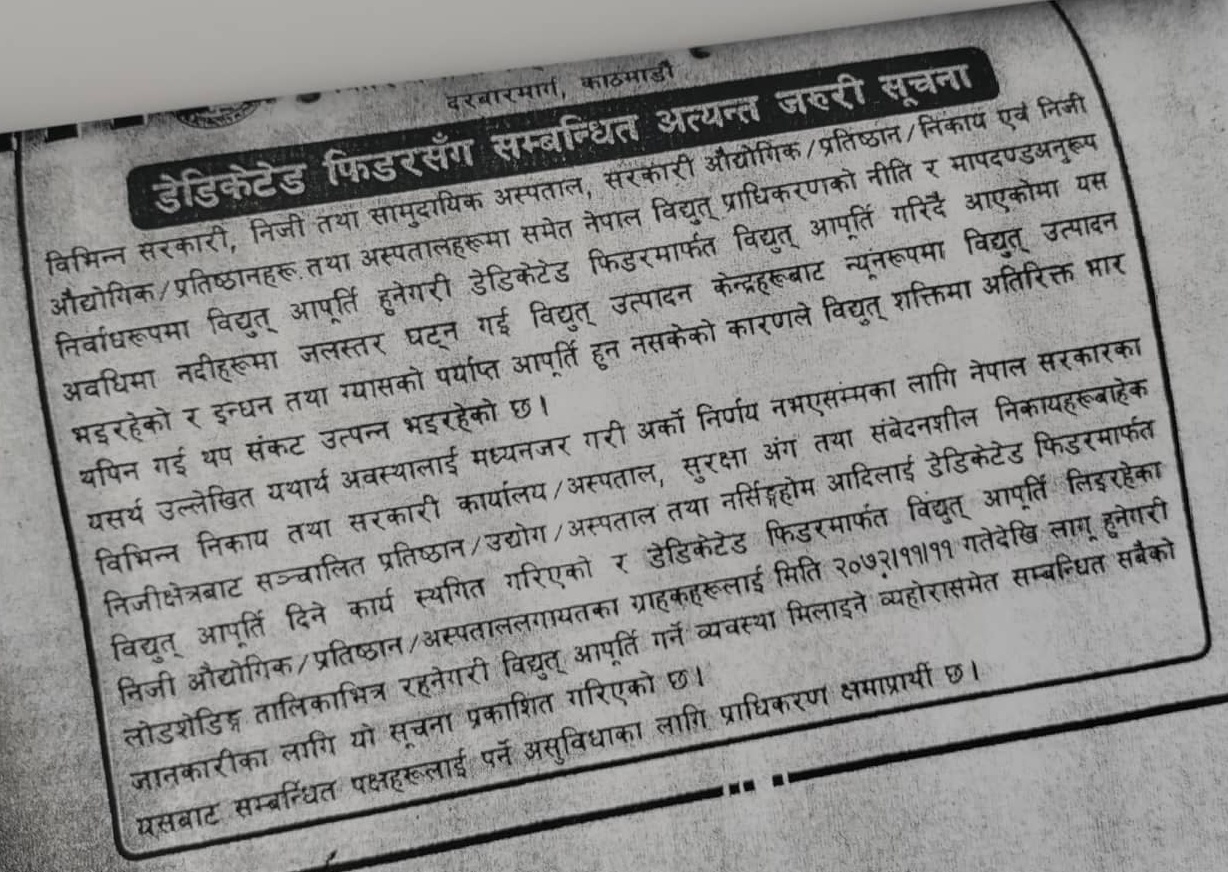 दरबारमार्ग, काठमाडौं
डेडिकेटेड फिडरसँग सम्बन्धित अत्यन्त जरुरी सूचना
विभिन्न सरकारी, निजी तथा सामुदायिक अस्पताल, सरकारी औद्योगिक/प्रतिष्ठान/निकाय एवं निजी
औद्योगिक/प्रतिष्ठानहरू तथा अस्पतालहरूमा समेत नेपाल विद्युत् प्राधिकरणको नीति र मापदण्डअनुरूप
निर्वाधरूपमा विद्युत् आपूर्ति हुनेगरी डेडिकेटेड फिडरमार्फत विद्युत् आपूर्ति गरिदै आएकोमा यस
अवधिमा नदीहरूमा जलस्तर घट्न गई विद्युत् उत्पादन केन्द्रहरूबाट न्यूनरूपमा विद्युत् उत्पादन
भइरहेको र इन्धन तथा ग्यासको पर्याप्त आपूर्ति हुन नसकेको कारणले विद्युत् शक्तिमा अतिरिक्त भार
थपिन गई थप संकट उत्पन्न भइरहेको छ।
यसर्थ उल्लेखित यथार्थ अवस्थालाई मध्यनजर गरी अर्को निर्णय नभएसम्मका लागि नेपाल सरकारका
विभिन्न निकाय तथा सरकारी कार्यालय/अस्पताल, सुरक्षा अंग तथा संबेदनशील निकायहरूबाहेक
निजीक्षेत्रबाट सञ्चालित प्रतिष्ठान/उद्योग/अस्पताल तथा नर्सिङ्गहोम आदिलाई डेडिकेटेड फिडरमार्फत
विद्युत् आपूर्ति दिने कार्य स्थगित गरिएको र डेडिकेटेड फिडरमार्फत विद्युत् आपूर्ति लिइरहेका
निजी औद्योगिक/प्रतिष्ठान/अस्पताललगायतका ग्राहकहरूलाई मिति २०७२।११।११ गतेदेखि लागू हुनेगरी
लोडशेडिङ्ग तालिकाभित्र रहनेगरी विद्युत् आपूर्ति गर्ने व्यवस्था मिलाइने व्यहोरासमेत सम्बन्धित सबैको
जानकारीका लागि यो सूचना प्रकाशित गरिएको छ।
यसबाट सम्बन्धित पक्षहरूलाई पर्ने असुविधाका लागि प्राधिकरण क्षमाप्रार्थी छ।